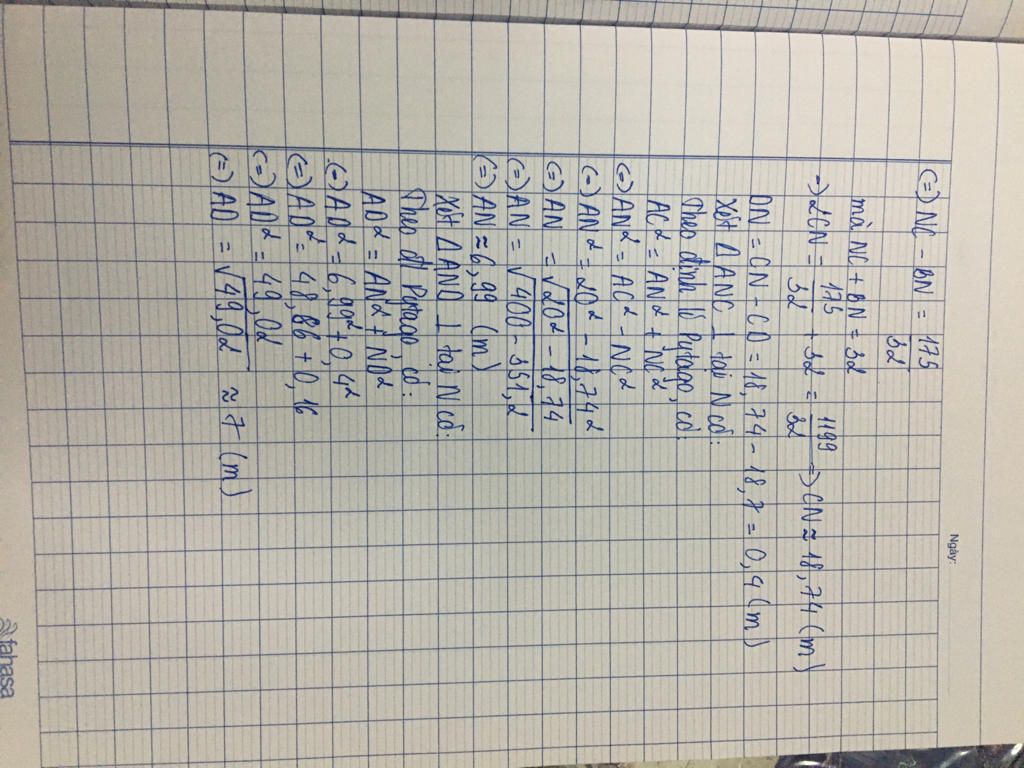 Ngày:
(=) NC - BN = 175/32
mà NC + BN = 32
=) 2CN = 175/32 + 32 = 1199/32 =) CN ≈ 18,74 (m)
DN = CN - CD = 18,74 - 18,7 = 0,4 (m)
Xét ΔANC ⊥ tại N có:
Theo định lí Pytago, có:
AC² = AN² + NC²
(=) AN² = AC² - NC²
(=) AN² = 20² - 18,74²
(=) AN = √20² - 18,74
(=) AN = √400 - 351,2
(=) AN ≈ 6,99 (m)
Xét ΔAND ⊥ tại N có:
Theo đl Pytago, có:
AD² = AN² + ND²
(=) AD² = 6,99² + 0,4²
(=) AD² = 48,86 + 0,16
(=) AD² = 49,02
(=) AD = √49,02 ≈ 7 (m)
fahasa